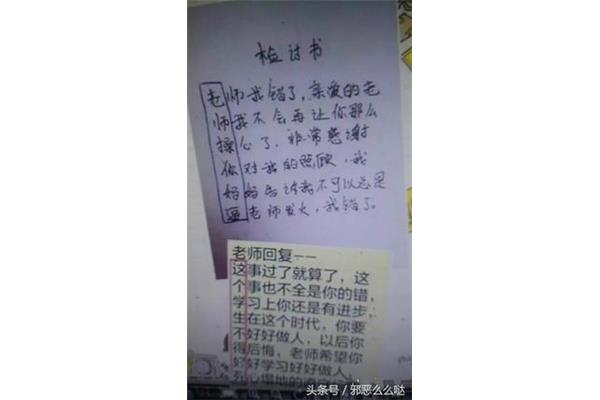 检讨书
老师我错了,亲爱的老
师我不会再让你那么
操心了,非常感谢
你对我的照顾,我
妈妈告诉我不可以总是
逗老师发火,我错了。
老师回复——
这事过了就算了,这
个事也不全是你的错,
学习上你还是有进步,
生在这个时代,你要
不好好做人,以后你
得后悔,老师希望你
好好学习好好做人,
死心塌地的
头条号/邪恶么么哒